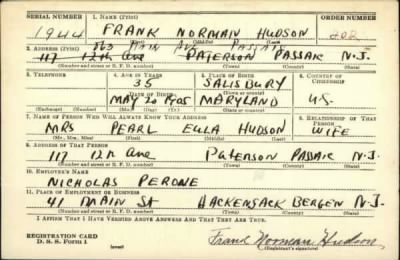 SERIAL NUMBER 1. NAME (Print) ORDER NUMBER
1944 FRANK NORMAN HUDSON 202
(First) (Middle) (Last)
863 MAIN AVE PASSAIC
2. ADDRESS (Print)
117 12th Ave PATERSON PASSAIC N.J.
(Number and street or R. F. D. number) (Town) (County) (State)
3. TELEPHONE 4. AGE IN YEARS 5. PLACE OF BIRTH 6. COUNTRY OF CITIZENSHIP
35 SALISBURY
(Town or county)
DATE OF BIRTH
MAY 20 1905 MARYLAND U.S.
(Exchange) (Number) (Mo.) (Day) (Yr.) (State or country)
7. NAME OF PERSON WHO WILL ALWAYS KNOW YOUR ADDRESS 8. RELATIONSHIP OF THAT PERSON
MRS PEARL ELLA HUDSON WIFE
(Mr., Mrs., Miss) (First) (Middle) (Last)
9. ADDRESS OF THAT PERSON
117 12th Ave Paterson PASSAIC N.J.
(Number and street or R. F. D. number) (Town) (County) (State)
10. EMPLOYER'S NAME
NICHOLAS PERONE
11. PLACE OF EMPLOYMENT OR BUSINESS
41 MAIN St HACKENSACK BERGEN N.J.
(Number and street or R. F. D. number) (Town) (County) (State)
I AFFIRM THAT I HAVE VERIFIED ABOVE ANSWERS AND THAT THEY ARE TRUE.
REGISTRATION CARD
D. S. S. Form 1 (over) Frank Norman Hudson
(Registrant's signature)